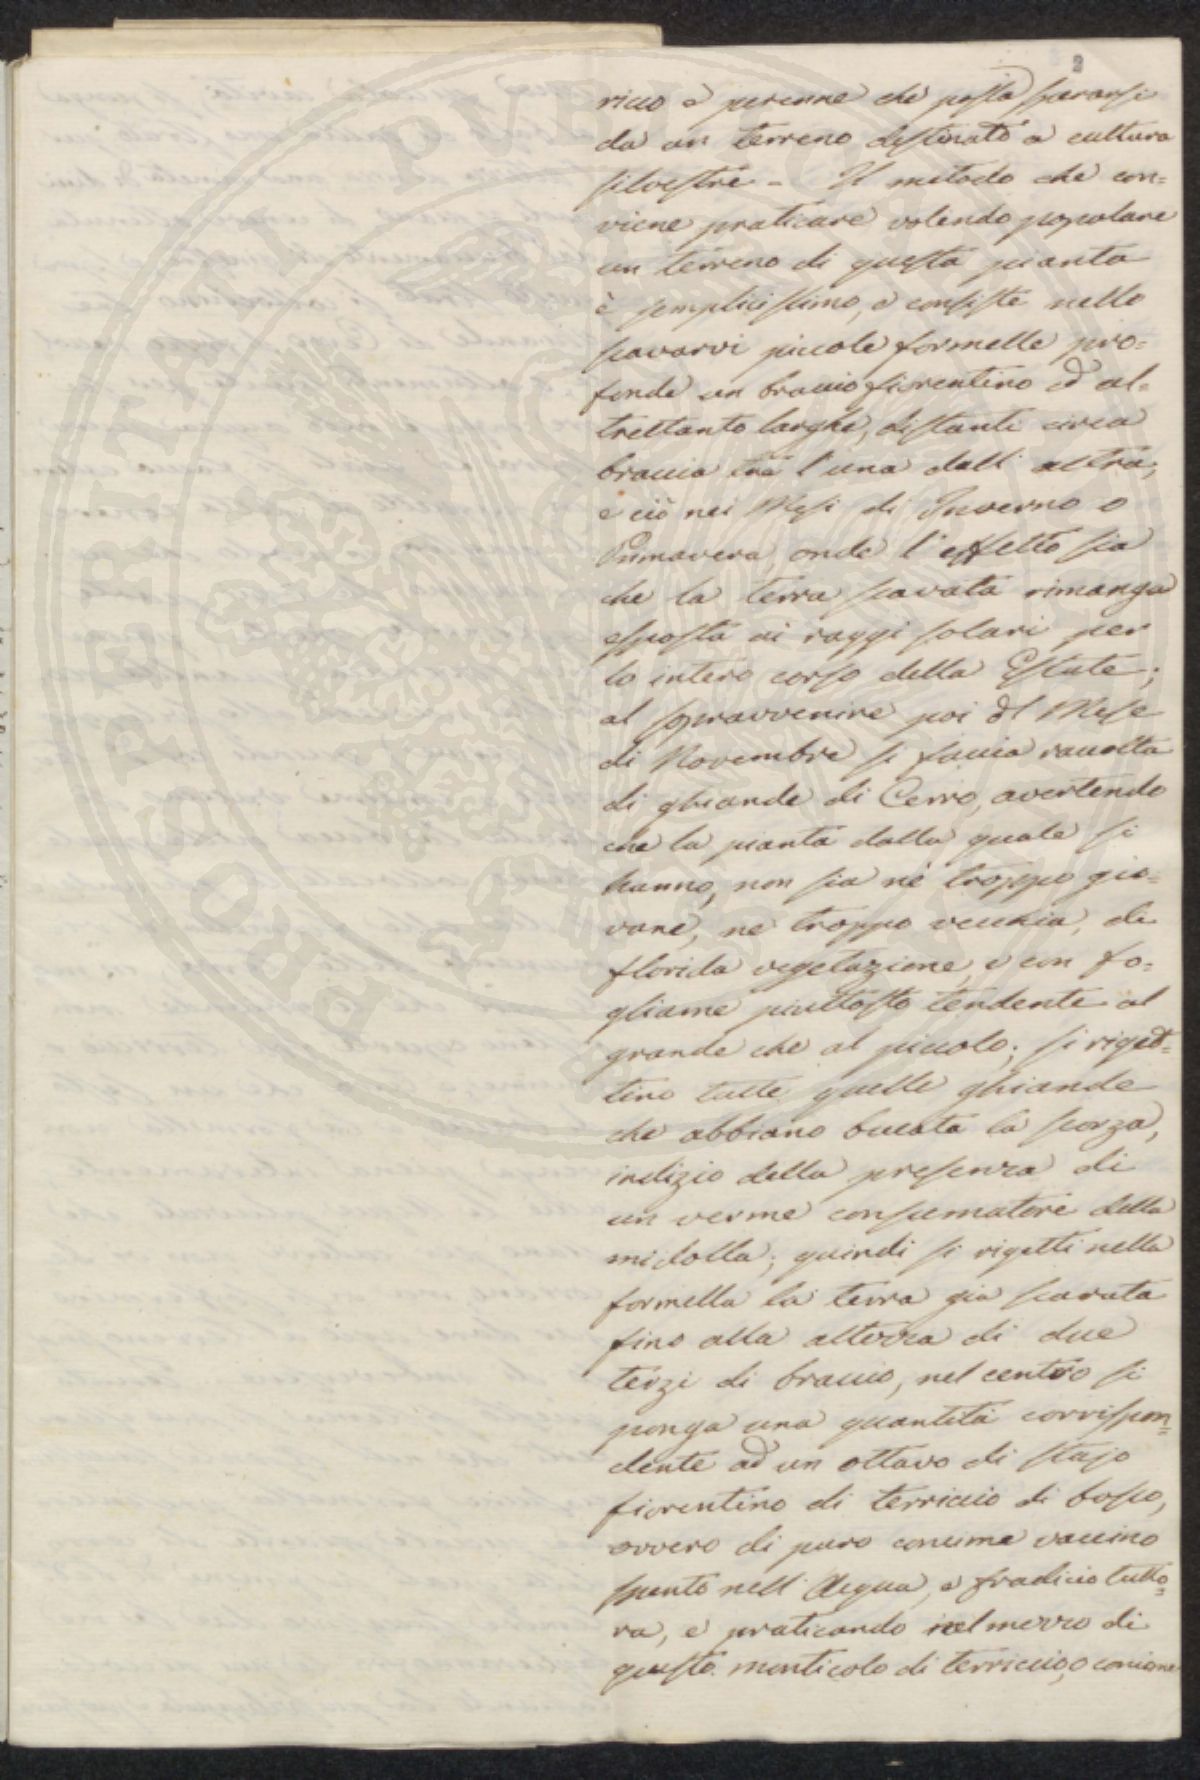 2
ricco e perenne che possa sperarsi
da un terreno destinato a cultura
silvestre - Il metodo che con=
viene praticare volendo popolare
un terreno di questa pianta
è semplicissimo, e consiste nello
scavarvi piccole formelle pro=
fonde un braccio fiorentino ed al=
trettanto larghe, distanti circa
braccia tre l'una dall'altra;
e ciò nei Mesi di Inverno o
Primavera, onde l'effetto sia
che la terra scavata rimanga
esposta ai raggi solari per
lo intero corso della Estate;
al sopravvenire poi del Mese
di Novembre si faccia raccolta
di ghiande di Cerro, avertendo
che la pianta dalla quale si
hanno, non sia nè troppo gio=
vane, ne troppo vecchia, di
florida vegetazione, e con fo=
gliame piuttosto tendente al
grande che al piccolo; si riget=
tino tutte quelle ghiande
che abbiano bucata la scorza,
indizio della presenza di
un verme consumatore della
midolla; quindi si rigetti nella
formella la terra già scavata
fino alla altezza di due
terzi di braccio, nel centro si
ponga una quantità corrispon=
dente ad un ottavo di stajo
fiorentino di terriccio di bosco,
ovvero di puro concime vaccino
spento nell'Acqua, e fradicio tutto=
ra, e praticando nel mezzo di
questo monticolo di terriccio, o concime
PROSPERITATI PUBLICAE